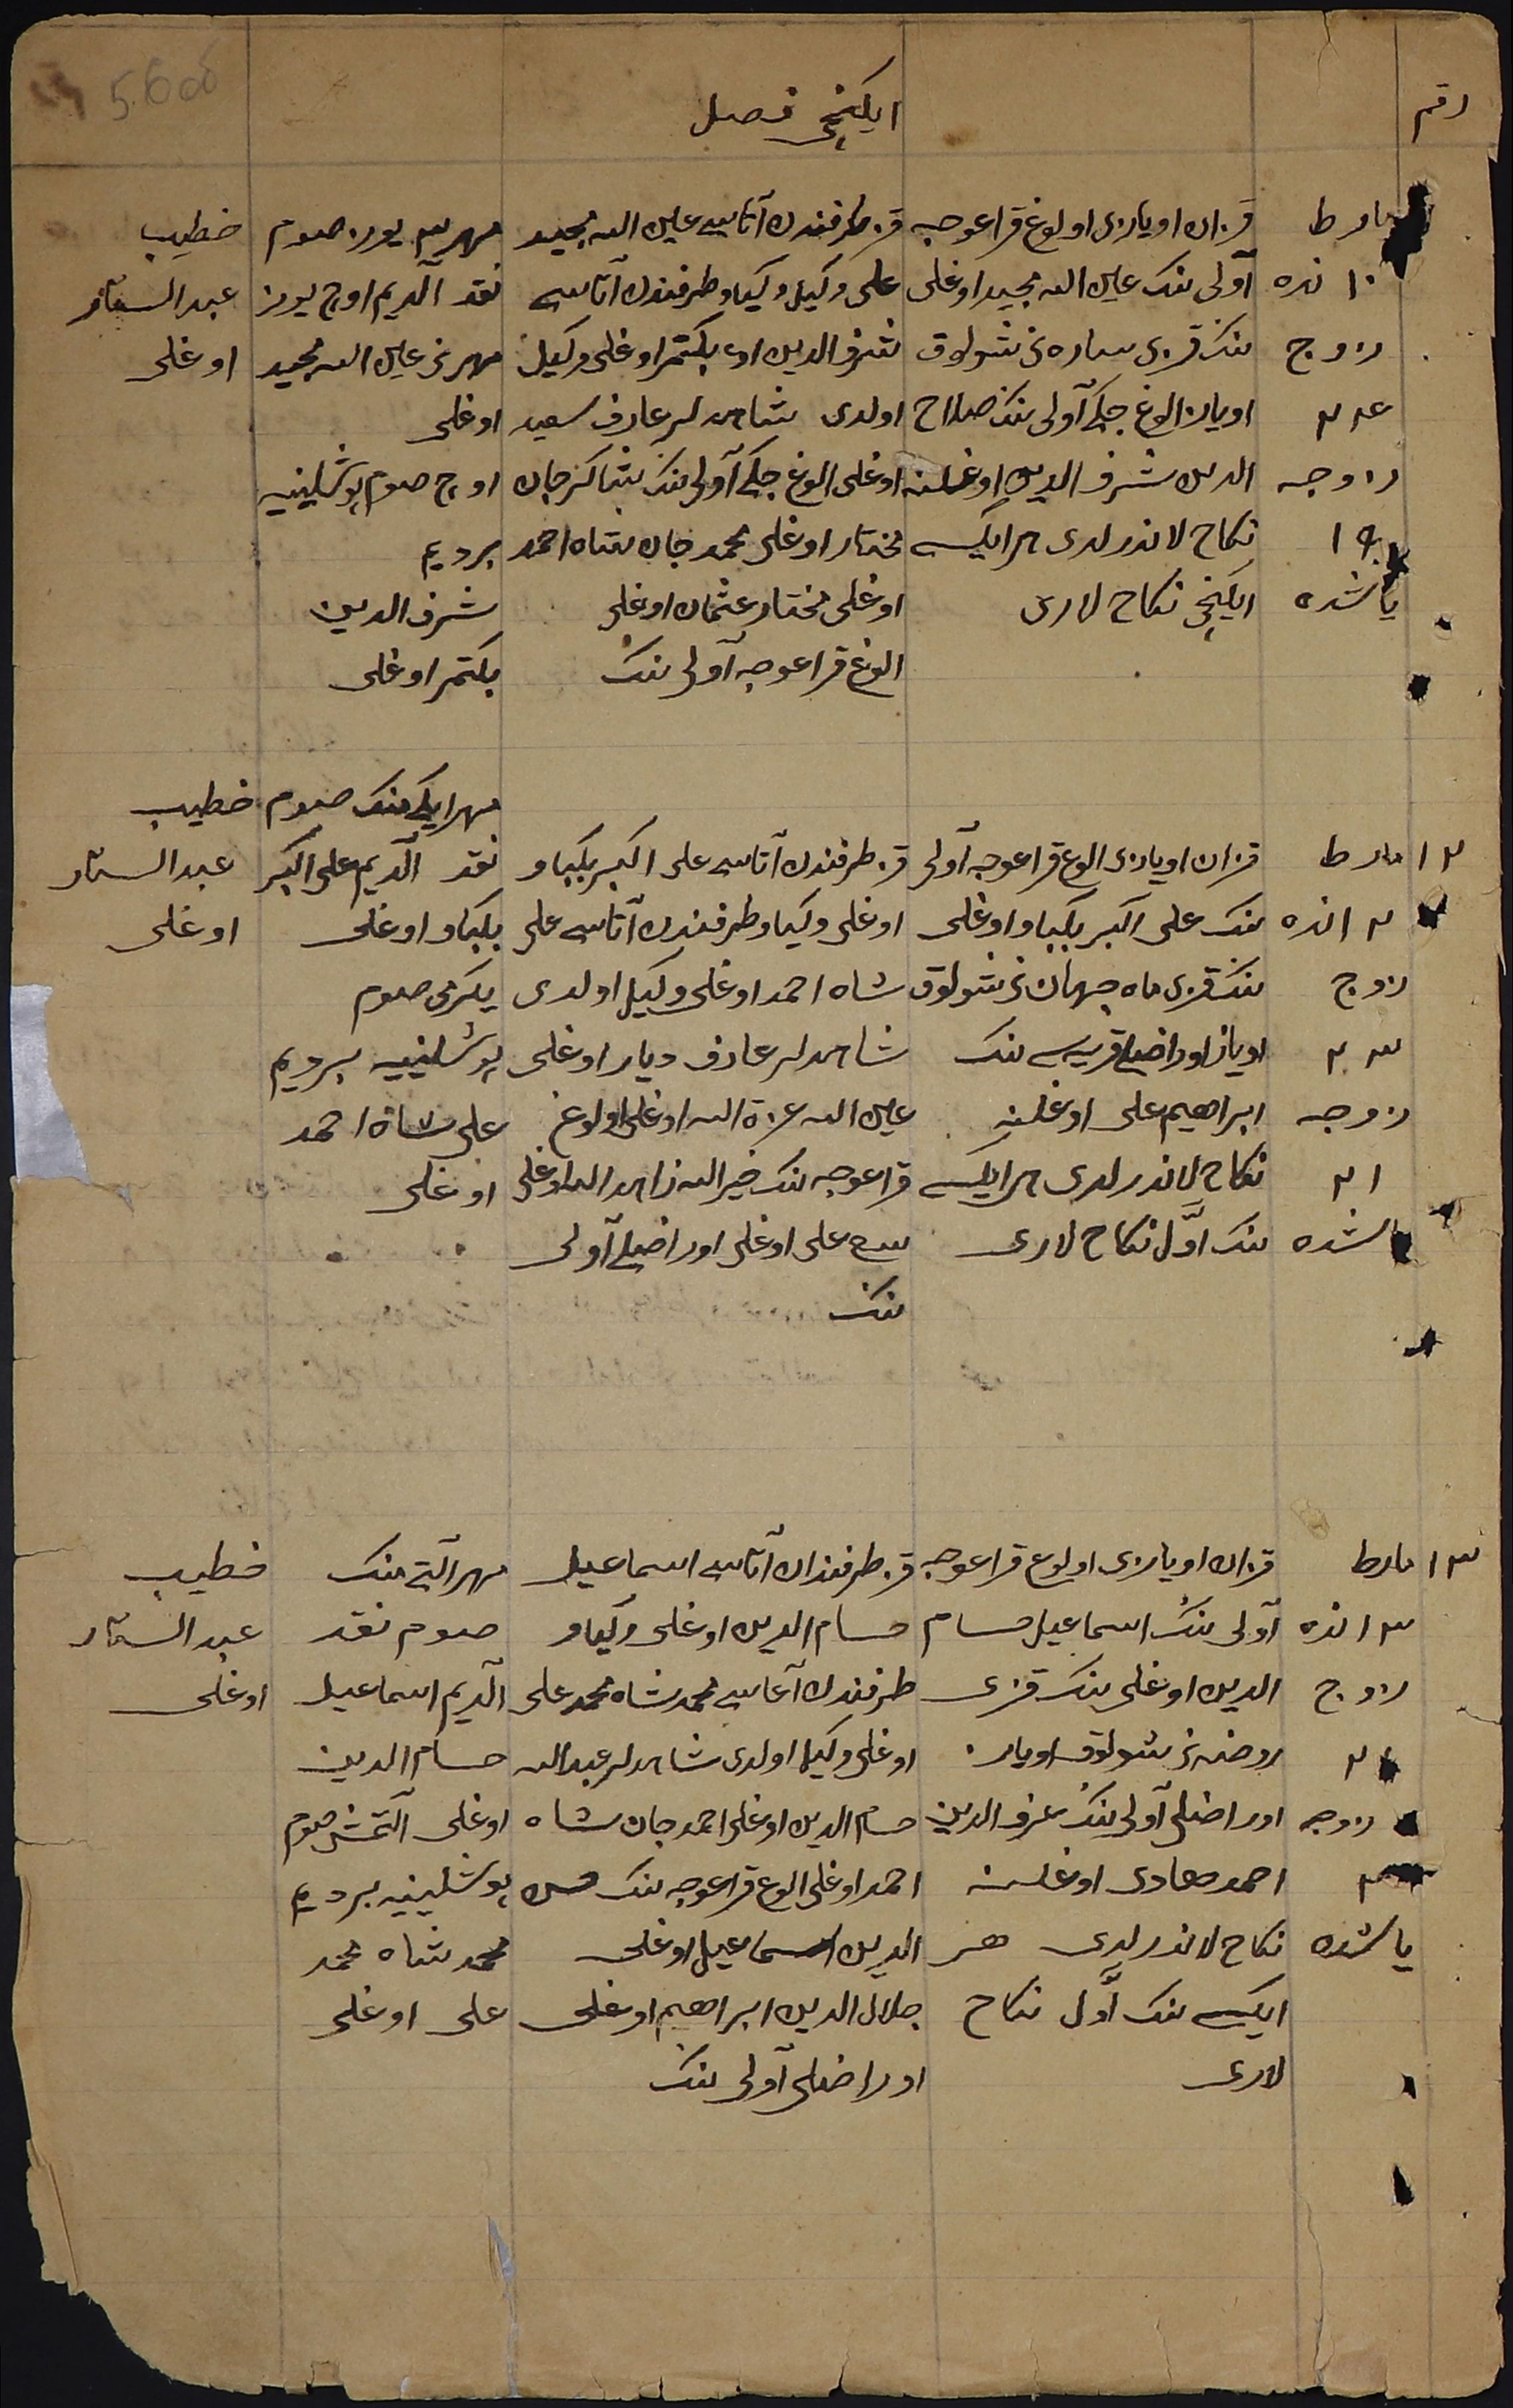 5.6 об
رقم
ایکنچی فصل
مارط
۱۰ نده
زوج
۲۴
زوجه
۱۹
یاشنده
قزان اویازی اولوغ قراعوجه
آولی ننک عین الله مجید اوغلی
ننک قزی ساره نی شولوق
اویازن الوغ جکی آولی ننک صلاح
الدین شرف الدین اوغلینه
نکاح لاندرلدی هر ایکیسی
ایکنچی نکاح لاری
قز طرفندن آتاسی عین الله مجید
علی وکیل وکیاو طرفندن آتاسی
شرف الدین بکتمر اوغلی وکیل
اولدی شاهدلر عارف سعید
اوغلی الوغ جکی آولی ننک شاکرجان
مختار اوغلی محمد جان شاه احمد
اوغلی مختار عثمان اوغلی
الوغ قراعوجه آولی ننک
مهر یوز صوم
نقد آلدیم اوچ یوز
مهرنی عین الله مجید
اوغلی
اوچ صوم پوشلینیه
بردیم
شرف الدین
بکتمر اوغلی
خطیب
عبد الستار
اوغلی
۱۲
مارط
۱۲ نده
زوج
۲۳
زوجه
۲۱
یاشنده
قزان اویازی الوغ قراعوجه آولی
ننک علی اکبر بکباو اوغلی
ننک قزی ماه جهان نی شولوق
اویاز اوراضلی قریه سی ننک
ابراهیم علی اوغلینه
نکاح لاندرلدی هر ایکیسی
ننک اوّل نکاح لاری
قز طرفندن آتاسی علی اکبر بکباو
اوغلی وکیاو طرفندن آتاسی علی
شاه احمد اوغلی وکیل اولدی
شاهدلر عارف دیار اوغلی
عین الله عزة الله اوغلی اولوغ
قراعوجه ننک خیر الله زاهد الله اوغلی
علی اوغلی اوراضلی آولی
ننک
مهر ایکی منک صوم
نقد آلدیم علی اکبر
بکباو اوغلی
یکرمی صوم
پوشلینیه بردیم
علی شاه احمد
اوغلی
خطیب
عبد الستار
اوغلی
۱۳
مارط
۱۳ نده
زوج
زوجه
یاشنده
قزان اویازی اولوغ قراعوجه
آولی ننک اسماعیل حسام
الدین اوغلی ننک قزی
روضه نی شولوق اویاز
اوراضلی آولی ننک شرف الدین
احمد هادی اوغلینه
نکاح لاندرلدی هر
ایکیسی ننک اوّل نکاح
لاری
قز طرفندن آتاسی اسماعیل
حسام الدین اوغلی وکیاو
طرفندن آغاسی محمد شاه محمد علی
اوغلی وکیل اولدی شاهدلر عبد الله
حسام الدین اوغلی احمد جان شاه
احمد اوغلی الوغ قراعوجه ننک
الدین اسماعیل اوغلی
جلال الدین ابراهیم اوغلی
اوراضلی آولی ننک
مهر آلتی منک
صوم نقد
آلدیم اسماعیل
حسام الدین
اوغلی آلتمش صوم
پوشلینیه بردیم
محمد شاه محمد
علی اوغلی
خطیب
عبد الستار
اوغلی